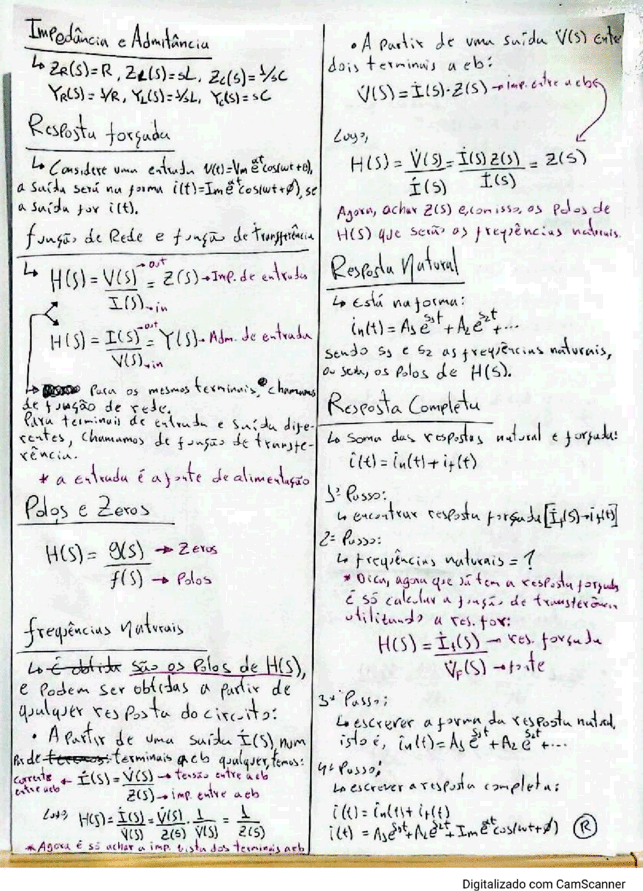 Impedância e Admitância
↳ Z_R(s)=R, Z_L(s)=sL, Z_C(s)=1/sC
Y_R(s)=1/R, Y_L(s)=1/sL, Y_C(s)=sC
Resposta forçada
↳ Considere uma entrada v(t)=Vm e^σt cos(ωt+θ),
a saída será na forma i(t)=Im e^σt cos(ωt+ø), se
a saída for i(t).
função de Rede e função de transferência
↳ H(s)=V(s)→out/I(s)→in = Z(s)→Imp. de entrada
H(s)=I(s)→out/V(s)→in = Y(s)→Adm. de entrada
→ Para os mesmos terminais, chamamos
de função de rede.
Para terminais de entrada e saída dife-
rentes, chamamos de função de transfe-
rência.
* a entrada é a fonte de alimentação
Polos e Zeros
H(s)= g(s) → Zeros
f(s) → Polos
frequências naturais
↳ É obtida são os Polos de H(s),
e Podem ser obtidas a partir de
qualquer resposta do circuito:
• A Partir de uma saída İ(s), num
Par de termos: terminais a e b qualquer, temos:
corrente entre a e b ← İ(s)= V̇(s) → tensão entre a e b
Z(s) → imp. entre a e b
Logo, H(s)= İ(s)/V̇(s) = V̇(s)/Z(s) · 1/V̇(s) = 1/Z(s)
* Agora é só achar a imp. vista dos terminais a e b
• A Partir de uma saída V(s) entre
dois terminais a e b:
V̇(s)=İ(s)·Z(s)→imp. entre a e b
Logo,
H(s)= V̇(s)/İ(s) = İ(s)Z(s)/İ(s) = Z(s)
Agora, achar Z(s) e, com isso, os Polos de
H(s) que serão as freqüências naturais.
Resposta Natural
↳ Está na forma:
in(t)=A₁e^s₁t + A₂e^s₂t +...
sendo s₁ e s₂ as freqüências naturais,
ou seja, os Polos de H(s).
Resposta Completa
↳ Soma das respostas natural e forçada:
i(t)=in(t)+if(t)
1º Passo:
↳ encontrar resposta forçada [İf(s)→if(t)]
2º Passo:
↳ freqüências naturais = ?
* Dica, agora que já tem a resposta forçada
é só calcular a função de transferência
utilizando a res. for:
H(s)= İf(s) → res. forçada
V̇F(s) → fonte
3º Passo:
↳ escrever a forma da resposta natural,
isto é, in(t)=A₁e^s₁t + A₂e^s₂t +...
4º Passo:
↳ escrever a resposta completa:
i(t)=in(t)+if(t)
i(t)=A₁e^s₁t+A₂e^s₂t+Im e^σt cos(ωt+ø) Ⓡ
Digitalizado com CamScanner